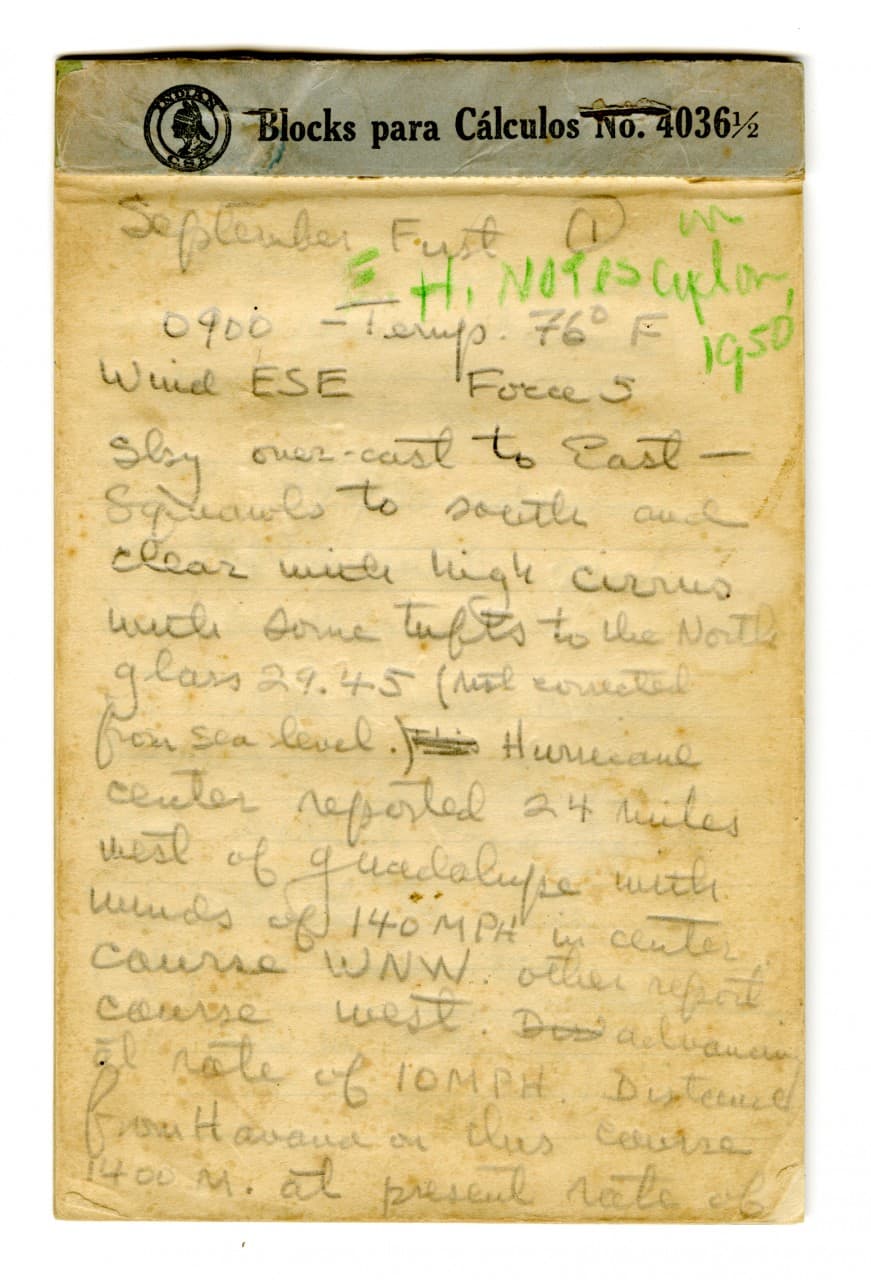 INDIAN
C.S.A.
Blocks para Cálculos No. 4036½
September First (1)
on
E. H. NOTES Cyclon,
1950
0900 - Temp. 76° F
Wind ESE Force 5
Sky over-cast to East —
Squawls to south and
clear with high cirrus
with some tufts to the North
glass 29.45 (not corrected
from sea level.) Hurricane
center reported 24 miles
west of Guadalupe with
winds of 140 MPH in center.
course WNW. other report
course west. advancing
at rate of 10 MPH. Distance
from Havana on this course
1400 M. at present rate of